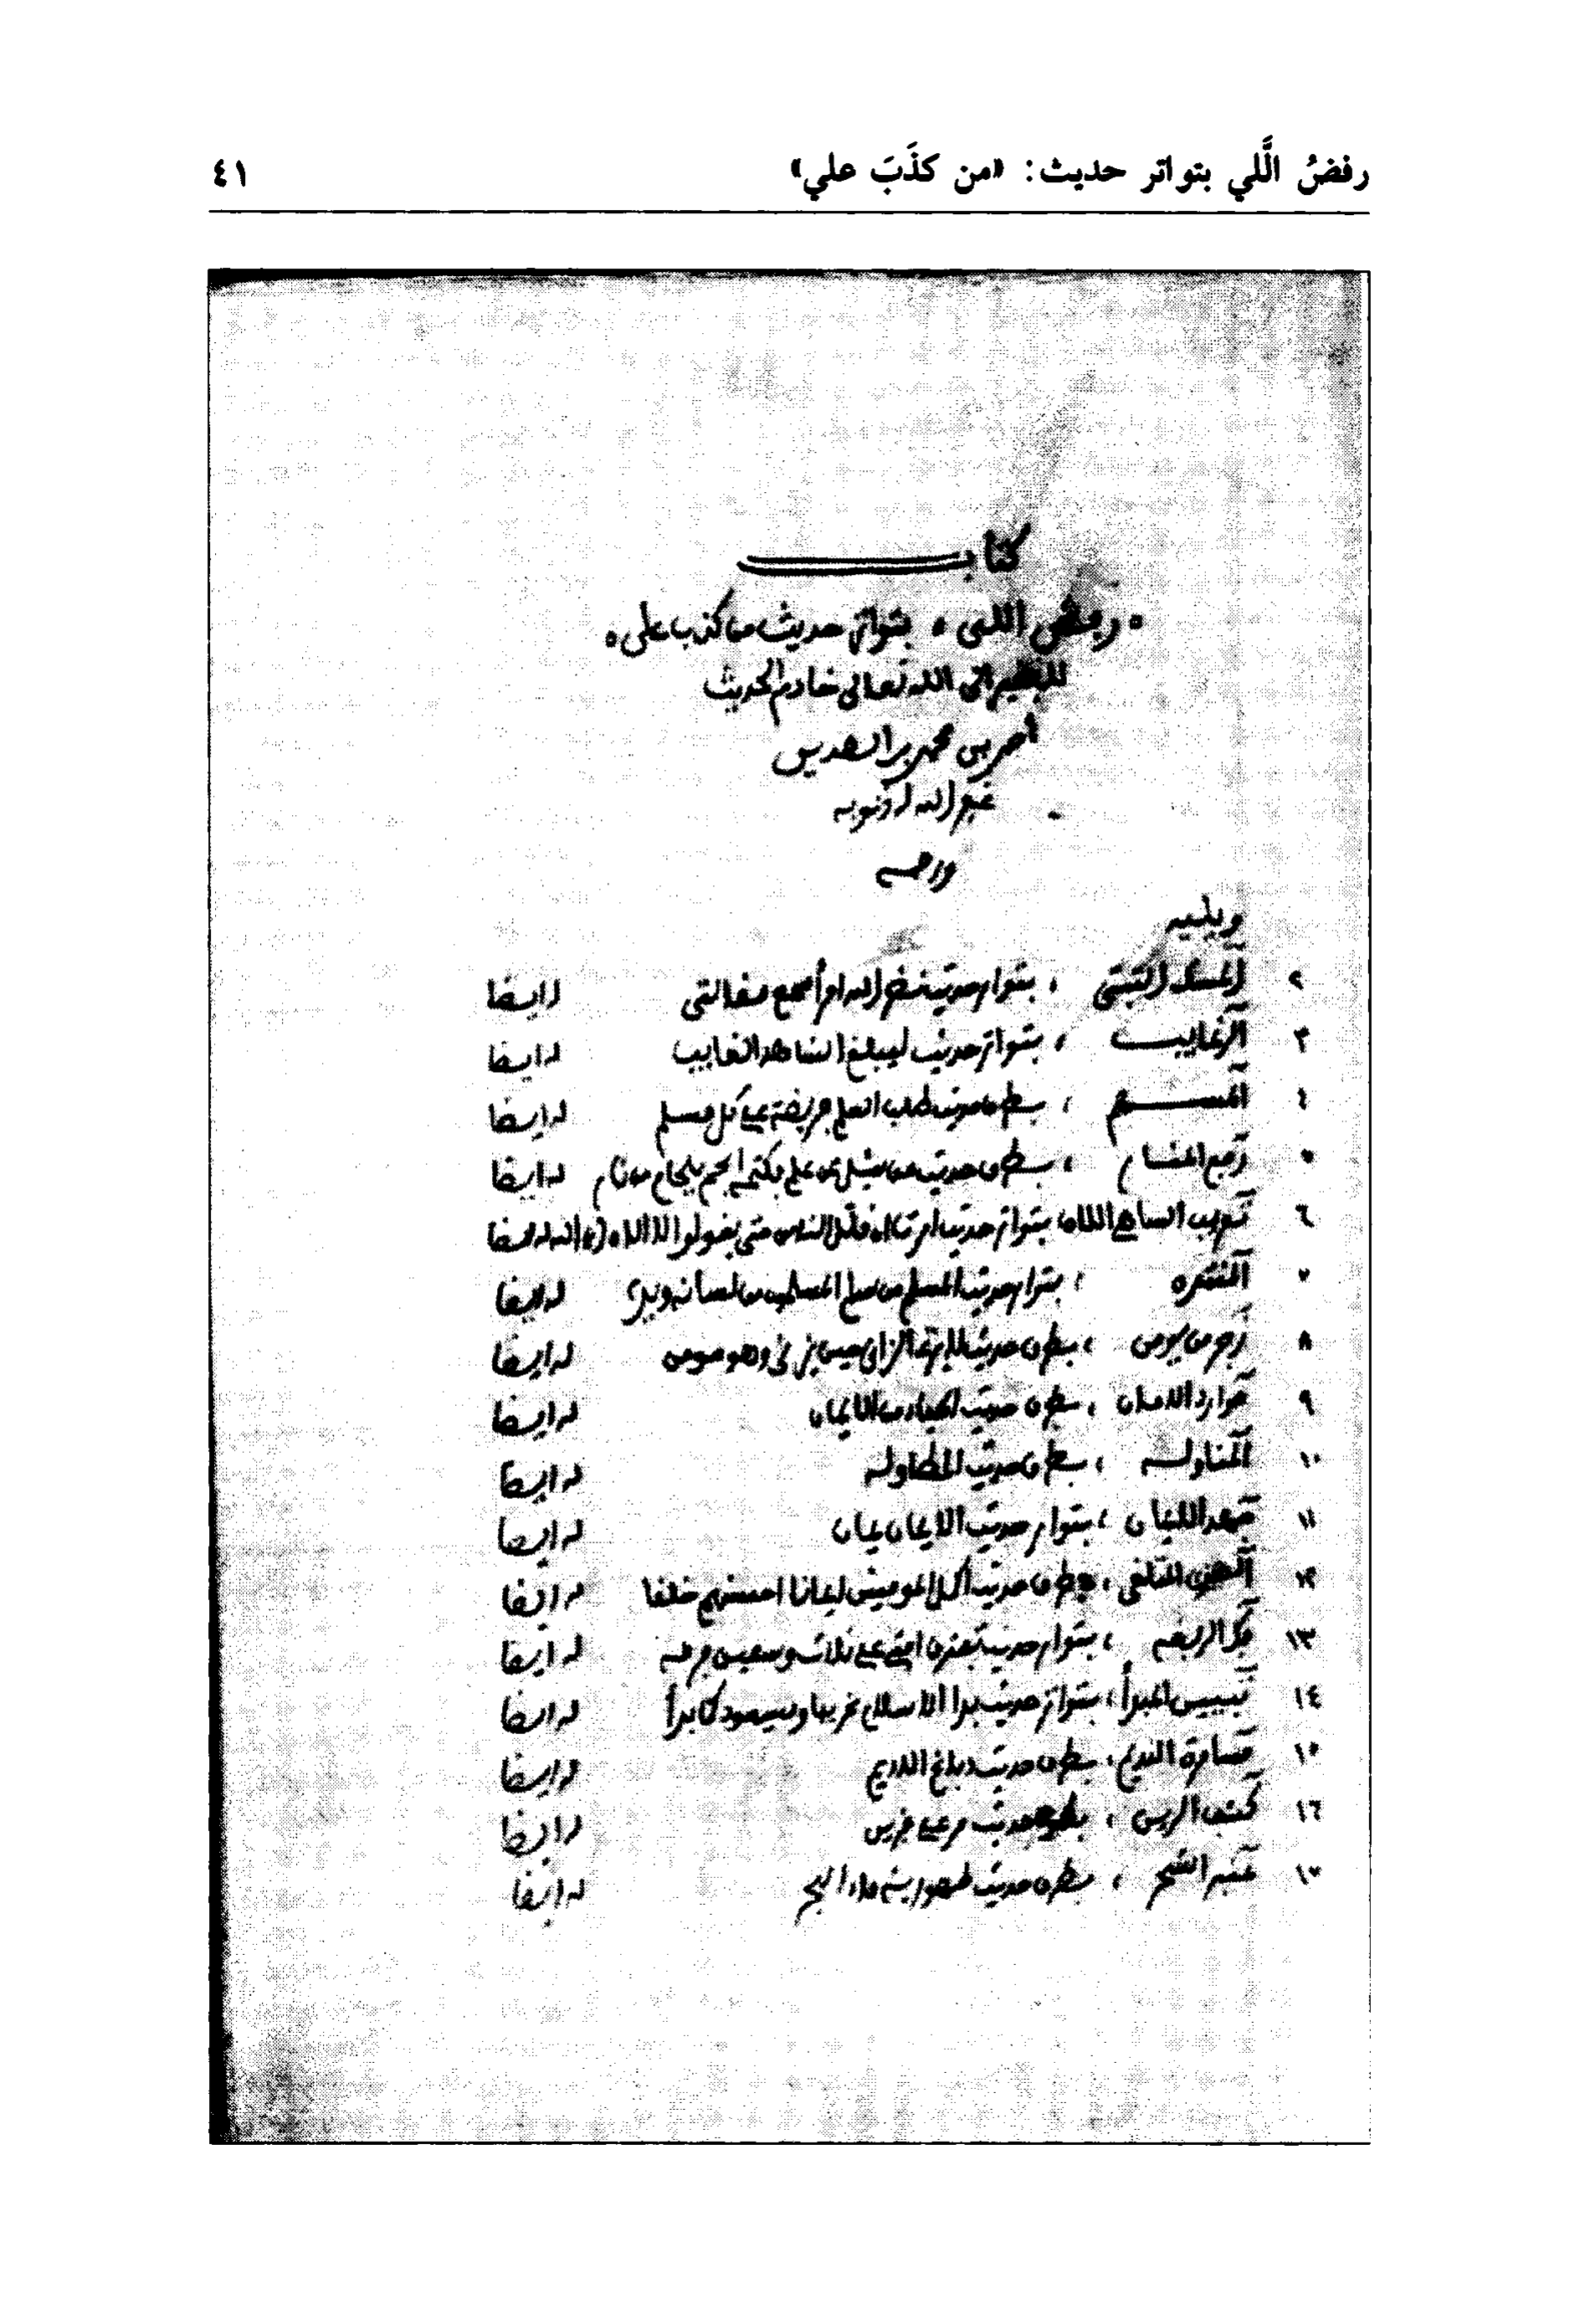 رفضُ الَّلي بتواتر حديث: «من كذَبَ علي»
٤١
كتاب
رفض اللي، بتواتر حديث من كذب علي
للفقير الى الله تعالى خادم الحديث
أحمد بن محمد بن الصديق
غفر الله له ذنوبه
ورحمه
ويليه
٢ المسك التبتي، بتواتر حديث نضر الله امرأ سمع مقالتي له ايضا
٣ الرغايب، بتواتر حديث ليبلغ الشاهد الغايب له ايضا
٤ المسهم، بطرق حديث طلب العلم فريضة على كل مسلم له ايضا
٥ رفع المنار، بطرق حديث من سئل عن علم فكتمه الجم بلجام من نار له ايضا
٦ بتواتر حديث امرت ان اقاتل الناس حتى يقولوا لا اله الا الله له ايضا
٧ بتواتر حديث المسلم من سلم المسلمون من لسانه ويده له ايضا
٨ زجر من يومن، بطرق حديث لا يزني الزاني حين يزني وهو مومن له ايضا
٩ موارد الامان، بطرق حديث الحياء من الايمان له ايضا
١٠ المناولة، بطرق حديث المطاولة له ايضا
١١ بتواتر حديث الايمان يمان له ايضا
١٢ بطرق حديث اكمل المومنين ايمانا احسنهم خلقا له ايضا
١٣ بتواتر حديث تفترق امتي على ثلاث وسبعين فرقة له ايضا
١٤ تبيين المبدأ، بتواتر حديث بدا الاسلام غريبا وسيعود كما بدأ له ايضا
١٥ مسامرة النديم، بطرق حديث دباغ الاديم له ايضا
١٦ كشف الرين، بطرق حديث مر على قبرين له ايضا
١٧ بطرق حديث طهورية ماء البحر له ايضا